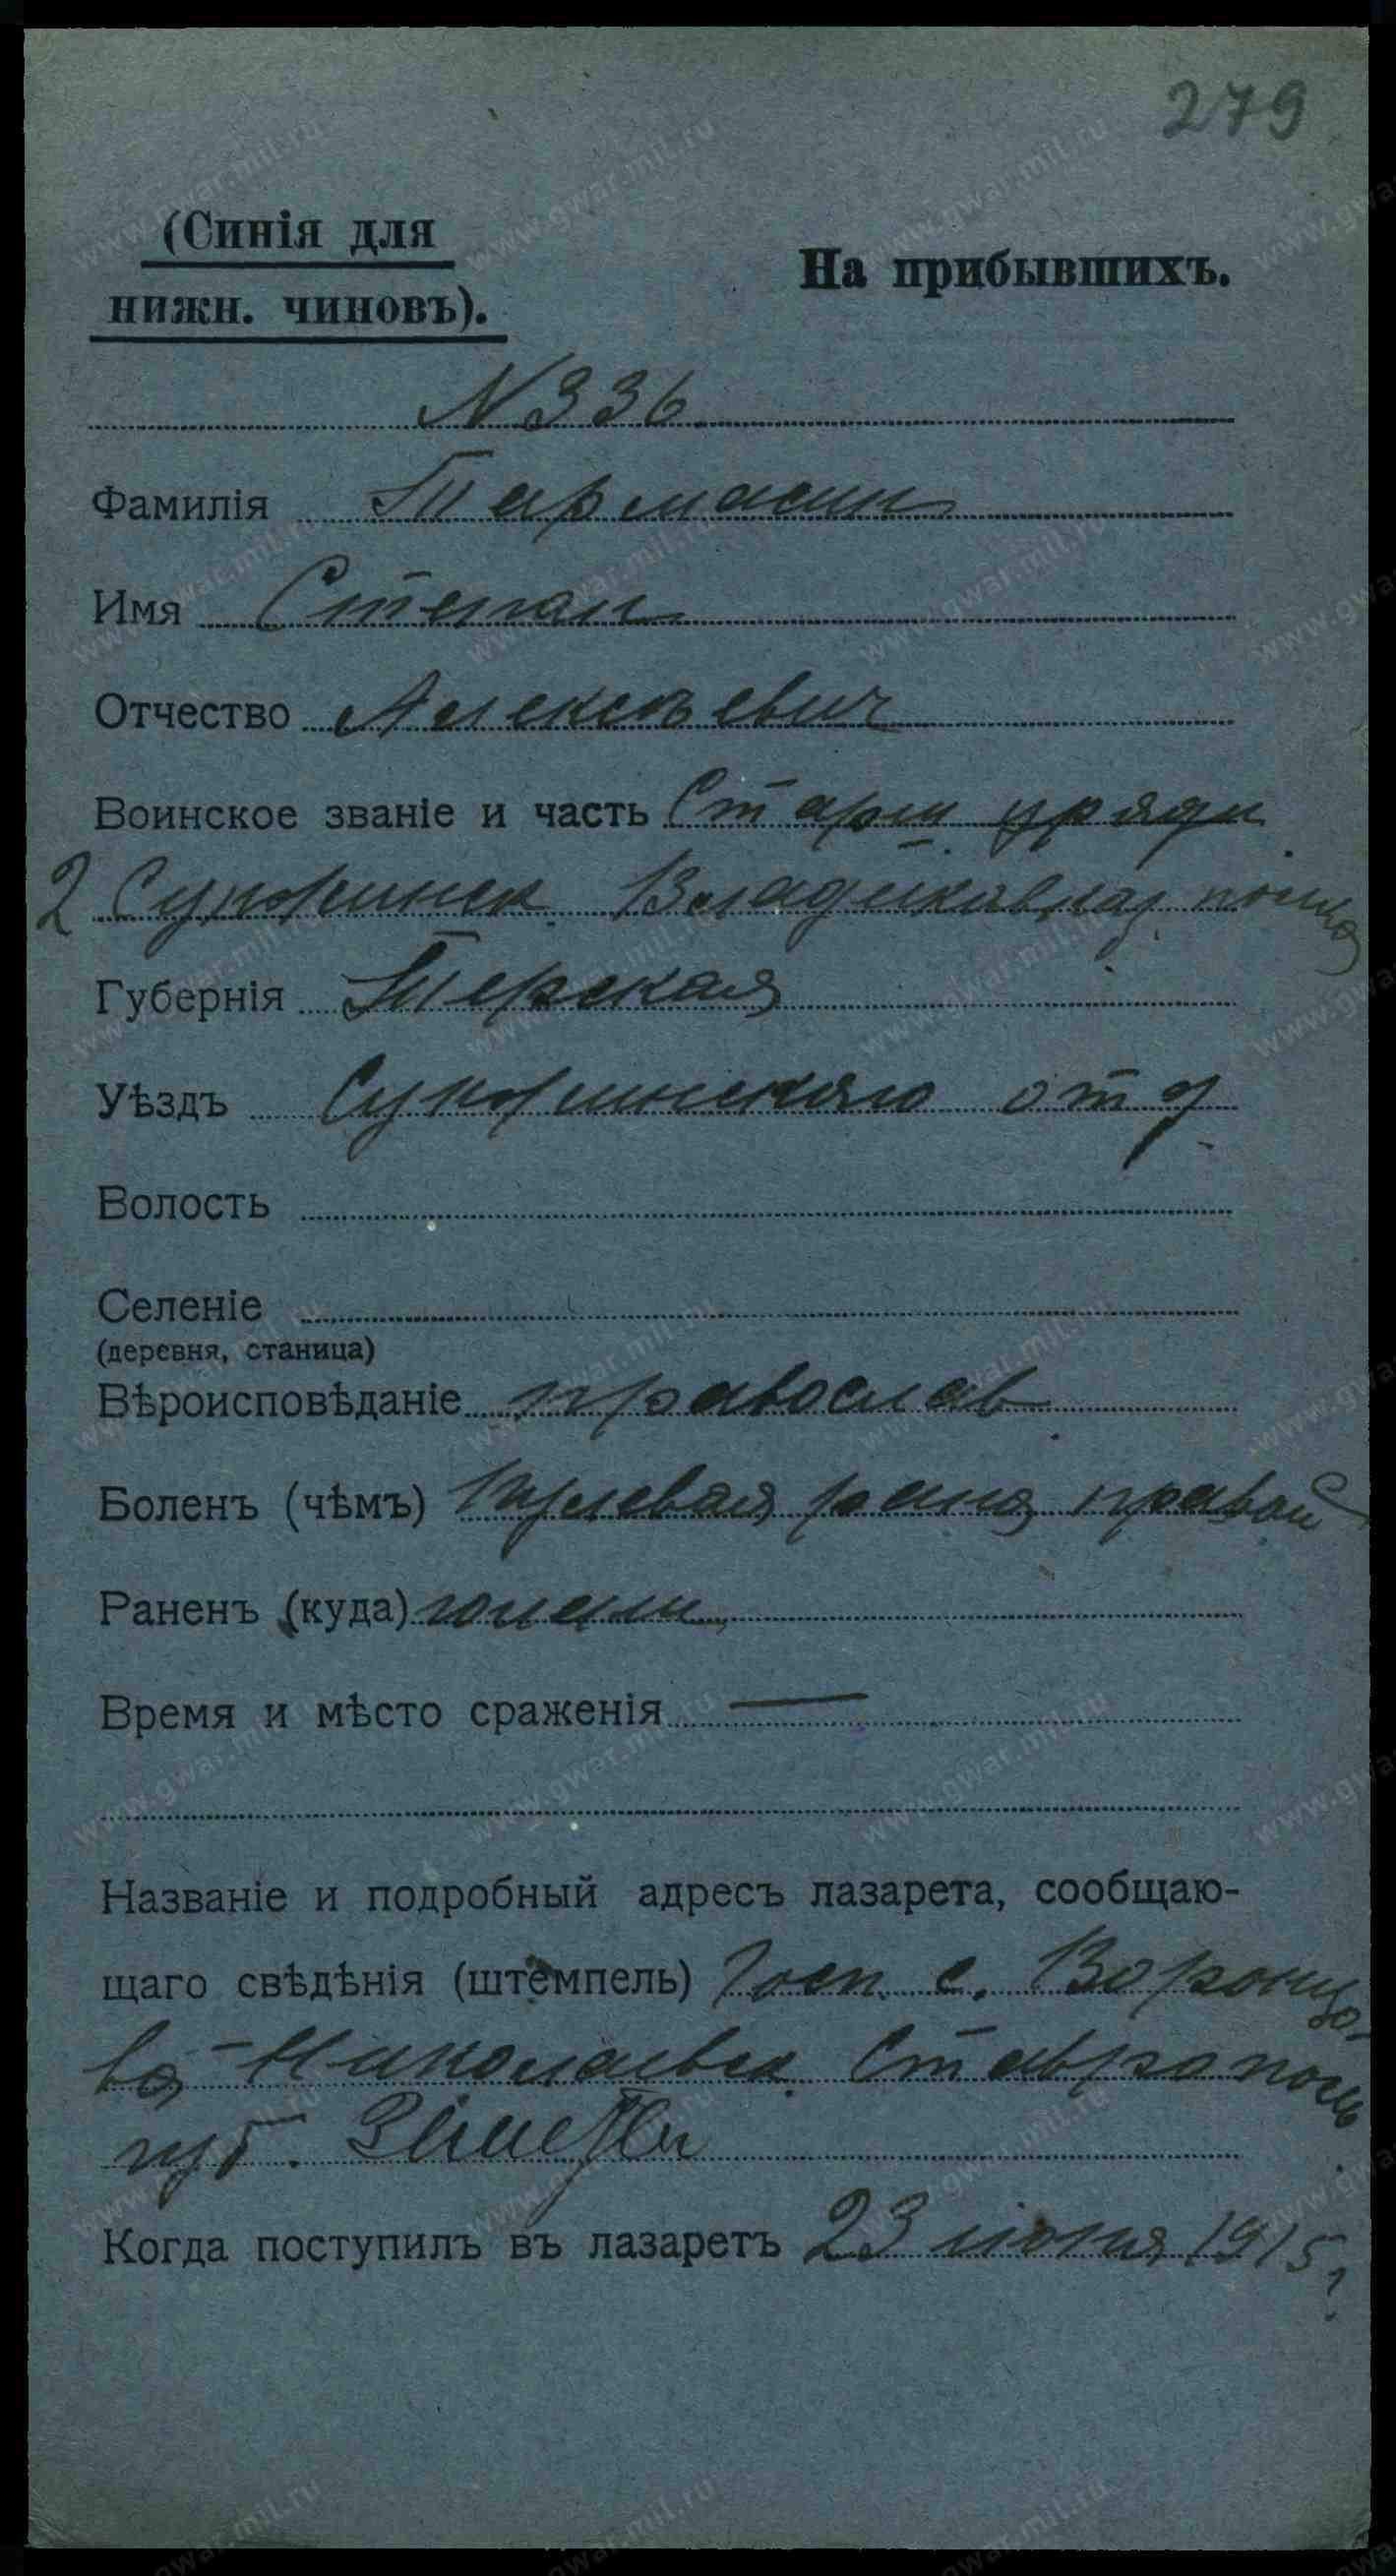 279
(Синія для
нижн. чиновъ).
На прибывшихъ.
N 336
Фамилія Тармасин
Имя Степан
Отчество Алексѣевич
Воинское званіе и часть Старш уряди
2 Сунженск. Владикавказ. полка
Губернія Терская
Уѣздъ Сунженскаго отд.
Волость
Селеніе
(деревня, станица)
Вѣроисповѣданіе православ
Боленъ (чѣмъ) Пулевая рана правой
Раненъ (куда) голени
Время и мѣсто сраженія —
Названіе и подробный адресъ лазарета, сообщаю-
щаго свѣдѣнія (штемпель) Госп. с. Воронцо-
во-Николаевск. Ставрополь
губ.
Когда поступилъ въ лазаретъ 23 июня 1915 г.